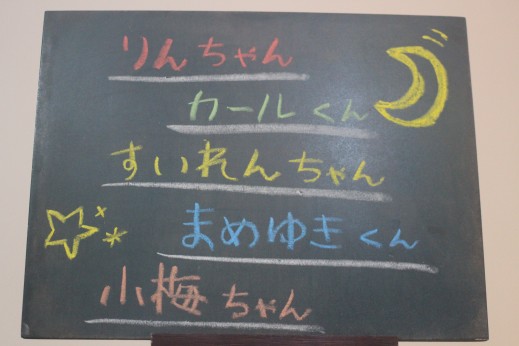 りんちゃん
カールくん
すいれんちゃん
まめゆきくん
小梅ちゃん